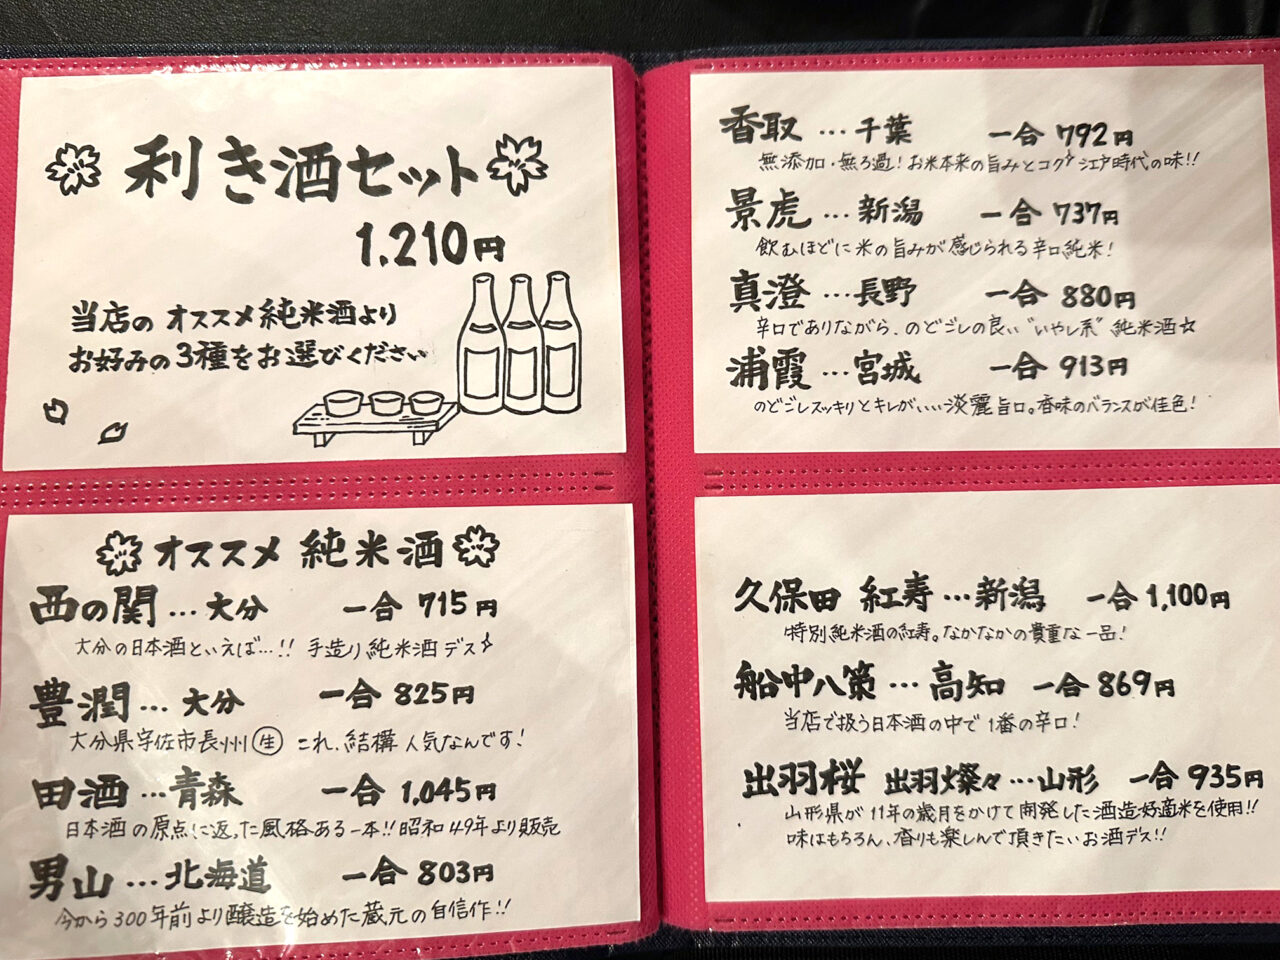 利き酒セット
1.210円
当店の オススメ純米酒より
お好みの3種をお選びください
オススメ 純米酒
西の関…大分 一合 715円
大分の日本酒といえば…!! 手造り純米酒デス
豊潤…大分 一合 825円
大分県宇佐市長州㊌ これ、結構人気なんです!
田酒…青森 一合 1,045円
日本酒の原点に返った風格ある一本!!昭和49年より販売
男山…北海道 一合 803円
今から300年前より醸造を始めた蔵元の自信作!!
香取…千葉 一合 792円
無添加・無ろ過!お米本来の旨みとコク 江戸時代の味!!
景虎…新潟 一合 737円
飲むほどに米の旨みが感じられる辛口純米!
真澄…長野 一合 880円
辛口でありながら、のどごしの良い"いやし系"純米酒☆
浦霞…宮城 一合 913円
のどごしスッキリとキレがいい淡麗旨口。香味のバランスが佳色!
久保田 紅寿…新潟 一合 1,100円
特別純米酒の紅寿。なかなかの貴重な一品!
船中八策…高知 一合 869円
当店で扱う日本酒の中で1番の辛口!
出羽桜 出羽燦々…山形 一合 935円
山形県が11年の歳月をかけて開発した酒造好適米を使用!!
味はもちろん、香りも楽しんで頂きたいお酒デス!!